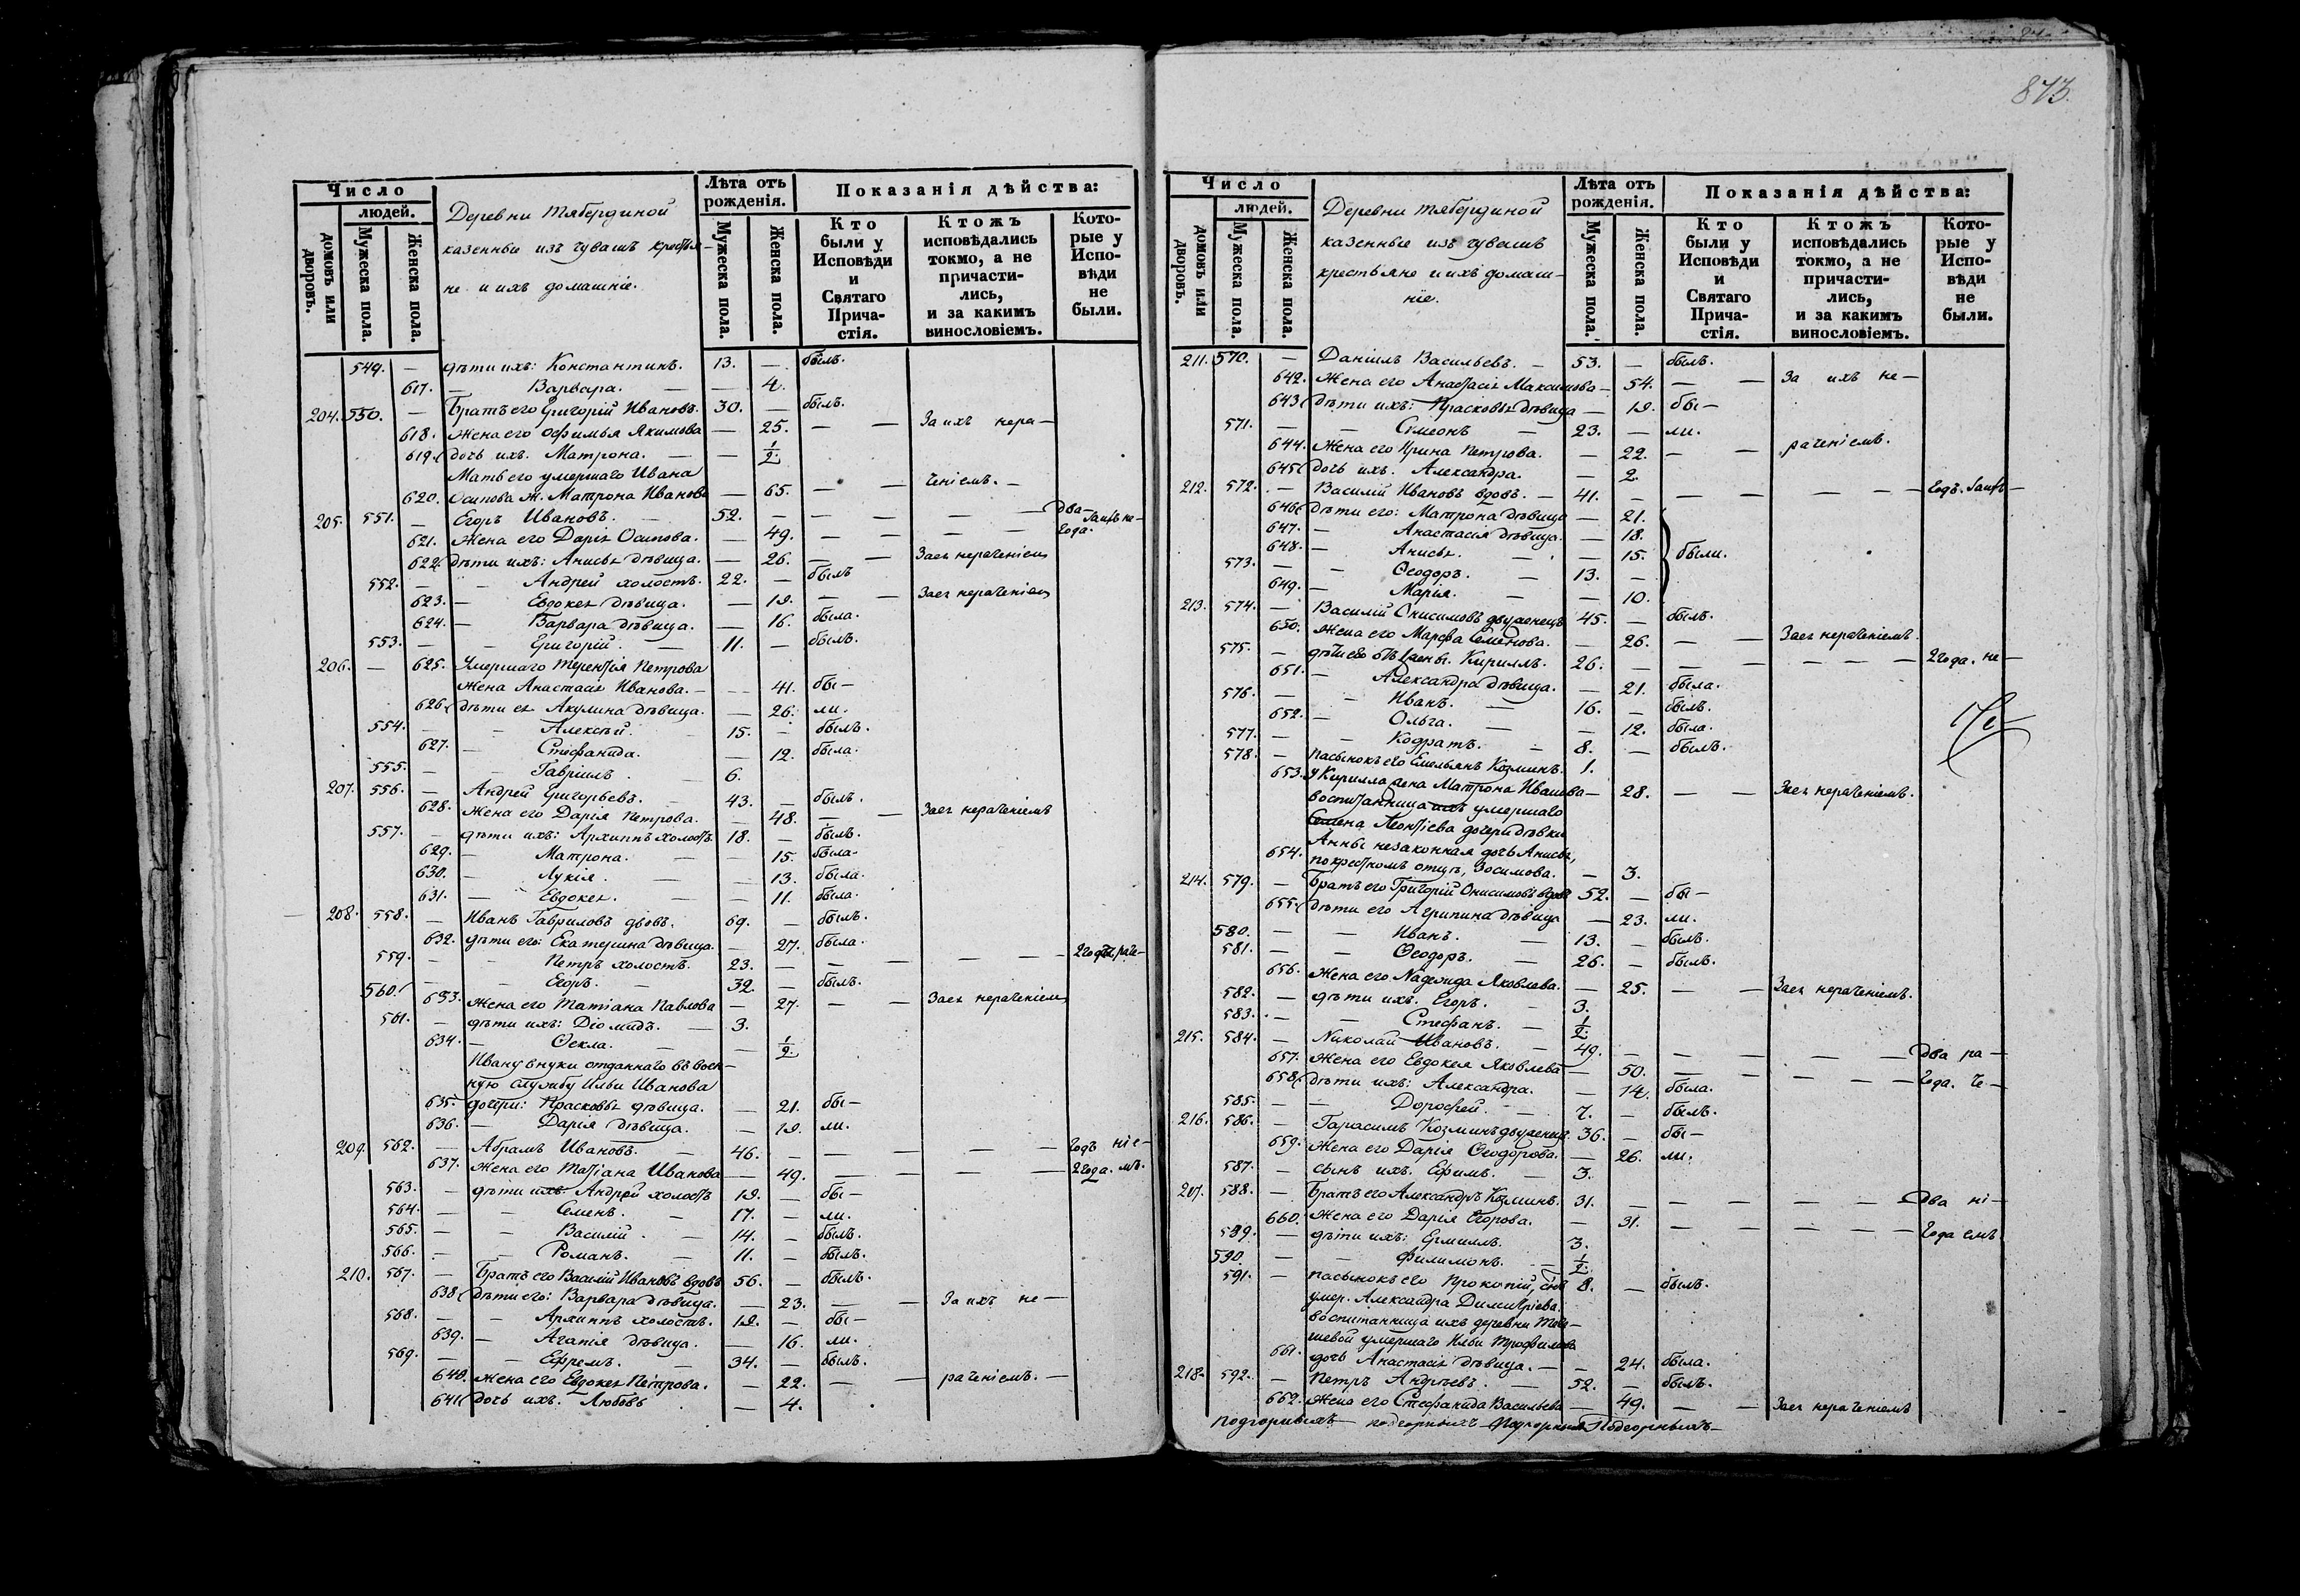 873.
Число
людей.
домовъ или дворовъ.
Мужеска пола.
Женска пола.
Деревни Тябердиной
казенные изъ чувашъ крестья-
не и ихъ домашніе.
Лѣта отъ рожденія.
Мужеска пола.
Женска пола.
Показанія дѣйства:
Кто были у Исповѣди и Святаго Прича- стія.
Ктожъ исповѣдались токмо, а не причасти- лись, и за какимъ винословіемъ.
Кото- рые у Испо- вѣди не были.
549. — дѣти ихъ: Константинъ. 13. — былъ.
617. — Варвара. — — 4.
204. 550. — Братъ его Григорій Ивановъ. 30. — былъ.
618. жена его Офимья Якимова — 25. — — За ихъ нера-
619. дочь ихъ. Матрона. — — 1/2.
Мать его умершаго Ивана
620. Осипова ж. Матрона Иванова — 65. — — ченіемъ. —
205. 551. — Егоръ Ивановъ. 52. — — — — — Два-
621. жена его Дарія Осипова. — 49. — — — года.
622. дѣти ихъ: Анисья дѣвица. — 26. — — За ея нераченіем
552. — — Андрей холостъ. 22. — былъ
623. — Евдокея дѣвица. — 19. — — За ея нераченіем
624. — Варвара дѣвица. — 16. была.
553. — — Григорій. — 11. — былъ.
206. — 625. Умершаго Терентія Петрова
жена Анастасія Иванова. — — 41. бы—
626. дѣти ея Акулина дѣвица. — 26. ли.
554. — — Алексѣй. 15. — былъ.
627. — Стефанида. — 12. была.
555. — — Гавріилъ. — 6.
207. 556. — Андрей Григорьевъ. 43. — былъ.
628. жена его Дарія Петрова. — 48. — — За ея нераченіемъ
557. — дѣти ихъ: Архиппъ холостъ. 18. — былъ.
629. — Матрона. — — 15. была.
630. — Лукія. — — 13. была.
631. — Евдокея. — — 11. была.
208. 558. — Иванъ Гавриловъ вдовъ. 69. — былъ.
632. дѣти его: Екатерина дѣвица. — 27. была.
559. — — Петръ холостъ. 23. — — — — —
560. — — Егоръ. — 32. — былъ.
633. жена его Татіана Павлова — 27. — — За ея нераченіем
561. — дѣти ихъ: Діомидъ. — 3.
634. — Ѳекла. — — 1/2.
Ивану внуки отданнаго въ воен-
ную службу Ильи Иванова
635. дочери: Прасковья дѣвица. — 21. бы—
636. — Дарія дѣвица. — 19. ли.
209. 562. — Абрамъ Ивановъ. — 46. — — — — — Годъ ніе—
637. жена его Татіана Иванова — 49. — — — — 2 года. мъ.
563. — дѣти ихъ: Андрей холостъ 19. — бы—
564. — — Семенъ. — 17. — ли.
565. — — Василій. — 14. — былъ.
566. — — Романъ. — 11. — былъ.
210. 567. — Братъ его Василій Ивановъ вдовъ 56. — былъ.
638. дѣти его: Варвара дѣвица. — 23. — — За ихъ не—
568. — — Архиппъ холостъ. 19. — бы—
639. — Агапія дѣвица. — 16. ли.
569. — — Ефремъ. — 34. — былъ.
640. жена его Евдокея Петрова. — 22. — — раченіемъ. —
641. дочь ихъ. Любовь — 4.
Число
людей.
домовъ или дворовъ.
Мужеска пола.
Женска пола.
Деревни Тябердиной
казенные изъ чувашъ
крестьяне и ихъ домаш-
ніе.
Лѣта отъ рожденія.
Мужеска пола.
Женска пола.
Показанія дѣйства:
Кто были у Исповѣди и Святаго Прича- стія.
Ктожъ исповѣдались токмо, а не причасти- лись, и за какимъ винословіемъ.
Кото- рые у Испо- вѣди не были.
211. 570. — Даніилъ Васильевъ. — 53. — былъ.
642. Жена его Анастасія Максимова — 54. — — За ихъ не—
643. дѣти ихъ: Прасковья дѣвица — 19. бы—
571. — — Симеонъ — 23. — ли.
644. Жена его Ирина Петрова. — 22. — — раченіемъ.
645. дочь ихъ. Александра. — 2.
212. 572. — Василій Ивановъ вдовъ. — 41. — — — — — — Годъ.
646. дѣти его: Матрона дѣвица — 21.
647. — Анастасія дѣвица. — 18.
648. — Анисья. — — 15. были.
573. — — Ѳеодоръ. — 13. —
649. — Марія. — — 10.
213. 574. — Василій Онисимовъ двуженецъ 45. — былъ.
650. Жена его Марфа Семенова. — 26. — — За ея нераченіемъ.
575. — Кириллъ. 26. — — — — — — 2 года. не—
651. — Александра дѣвица. — 21. была.
576. — — Иванъ. — 16. — былъ.
652. — Ольга. — — 12. была.
577. — — Кодратъ. — 8. — былъ.
578. — пасынокъ его Емельянъ Козминъ. 1.
653. у Кирилла жена Матрона Иванова — 28. — — За ея нераченіемъ.
воспитанница ихъ умершаго
Семена Леонтіева дочери дѣвки
Анны незаконная дочь Анисья,
654. по крестномъ отцѣ, Зосимова. — 3.
214. 579. — Братъ его Григорій Онисимовъ вдовъ 52. — бы—
655. дѣти его Агрипина дѣвица — 23. ли.
580. — — Иванъ. — 13. — былъ.
581. — — Ѳеодоръ. — 26. — былъ.
656. Жена его Надежда Яковлева. — 25. — — За ея нераченіемъ.
582. — дѣти ихъ. Егоръ. — 3.
583. — — Стефанъ. — 1/2.
215. 584. — Николай Ивановъ. — 49. — — — — — Два ра—
657. Жена его Евдокея Яковлева — 50. — — — — — Года. че—
658. дѣти ихъ: Александра. — 14. была.
585. — — Дорофей. — 7. — былъ.
216. 586. — Гарасимъ Козминъ двуженецъ 36. — бы—
659. Жена его Дарія Ѳеодорова. — 26. ли.
587. — сынъ ихъ. Ефимъ. — 3.
217. 588. — Братъ его Александръ Козминъ. 31. — — — — — Два ні—
660. Жена его Дарія Егорова. — 31. — — — — — Года емъ
589. — дѣти ихъ: Ермилъ. 3.
590. — — Филимонъ. — 1/2.
591. — пасынокъ его Прокопій, сынъ 8. — былъ.
умер. Александра Димитріева.
воспитанница ихъ деревни
умершаго Ильи Трофимова
661. дочь Анастасія дѣвица. — — 24. была.
218. 592. — Петръ Андреевъ. — 52. — былъ.
662. Жена его Стефанида Васильева — 49. — — За ея нераченіемъ